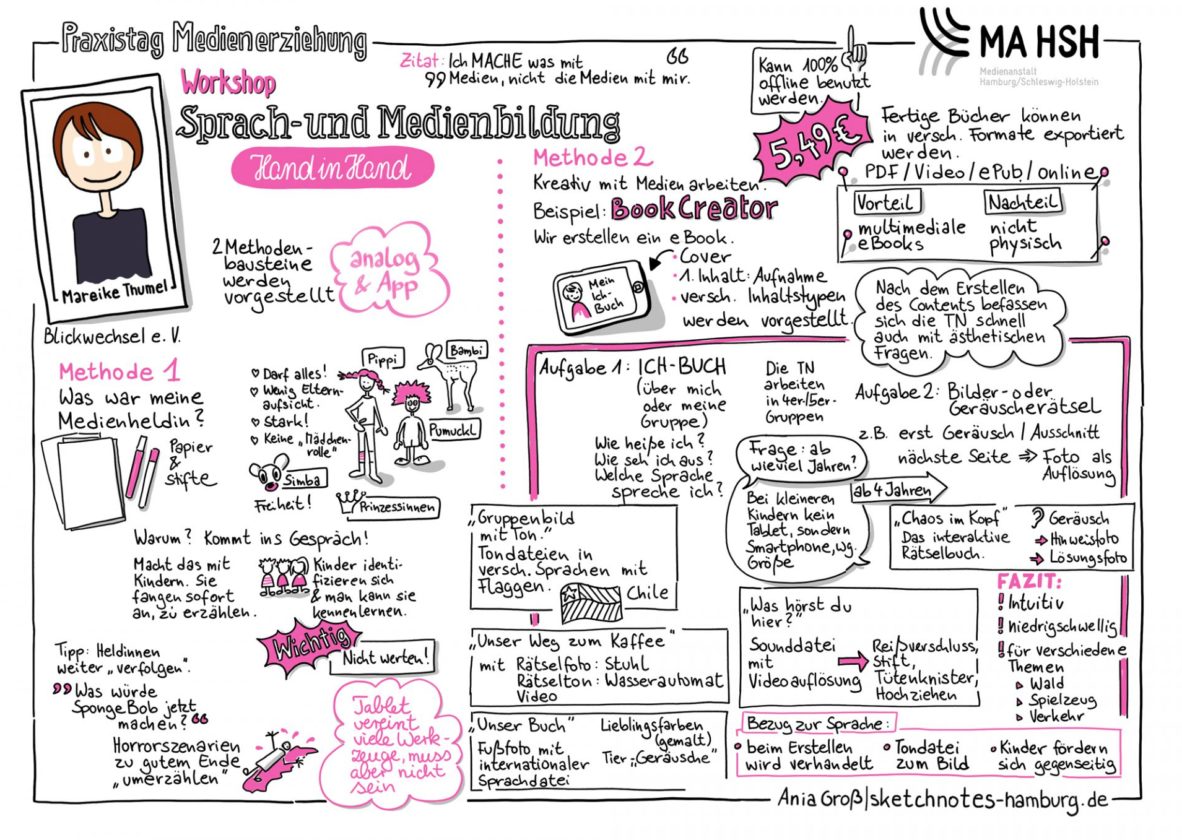 Praxistag Medienerziehung
Zitat: Ich MACHE was mit
99 Medien, nicht die Medien mit mir. 66
Workshop
Sprach- und Medienbildung
Hand in Hand
MA HSH
Medienanstalt
Hamburg/Schleswig-Holstein
Mareike Thumel
Blickwechsel e. V.
2 Methoden-
bausteine
werden
vorgestellt
analog
& App
Methode 1
Was war meine
Medienheldin?
Papier
&
Stifte
♡ Darf alles!
♡ Wenig Eltern-
aufsicht.
♡ Stark!
♡ Keine „Mädchen-
rolle"
Pippi
Bambi
Pumuckl
Simba
Freiheit!
Prinzessinnen
Warum? Kommt ins Gespräch!
Macht das mit
Kindern. Sie
fangen sofort
an, zu erzählen.
Kinder identi-
fizieren sich
& man kann sie
kennenlernen.
Wichtig
Nicht werten!
Tipp: Heldinnen
weiter „verfolgen".
„Was würde
SpongeBob jetzt
machen?"
Horrorszenarien
zu gutem Ende
„umerzählen"
Tablet
vereint
viele Werk-
zeuge, muss
aber nicht
sein
Methode 2
Kreativ mit Medien arbeiten.
Beispiel: BookCreator
Wir erstellen ein eBook.
Mein
Ich-
Buch
• Cover
• 1. Inhalt: Aufnahme
• versch. Inhaltstypen
werden vorgestellt.
Kann 100%
offline benutzt
werden.
5,49€
Fertige Bücher können
in versch. Formate exportiert
werden.
PDF/Video/ePub/online
Vorteil
multimediale
eBooks
Nachteil
nicht
physisch
Nach dem Erstellen
des Contents befassen
sich die TN schnell
auch mit ästhetischen
Fragen.
Aufgabe 1: ICH-BUCH
(über mich
oder meine
Gruppe)
Wie heiße ich?
Wie seh ich aus?
Welche Sprache
spreche ich?
Die TN
arbeiten
in 4er/5er-
Gruppen
Aufgabe 2: Bilder- oder
Geräuscherätsel
z.B. erst Geräusch/Ausschnitt
nächste Seite ⇒ Foto als
Auflösung
Frage: ab
wieviel Jahren?
ab 4 Jahren
Bei kleineren
Kindern kein
Tablet, sondern
Smartphone, wg.
Größe
„Gruppenbild
mit Ton."
Tondateien in
versch. Sprachen mit
Flaggen.
Chile
„Chaos im Kopf"
Das interaktive
Rätselbuch.
Geräusch
→ Hinweisfoto
→ Lösungsfoto
„Unser Weg zum Kaffee"
mit Rätselfoto: Stuhl
Rätselton: Wasserautomat
Video
„Was hörst du
hier?"
Sounddatei
mit
Videoauflösung
→ Reißverschluss,
Stift,
Tütenknister,
Hochziehen
FAZIT:
! Intuitiv
! niedrigschwellig
! für verschiedene
Themen
▸ Wald
▸ Spielzeug
▸ Verkehr
„Unser Buch"
Fußfoto mit
internationaler
Sprachdatei
Lieblingsfarben
(gemalt)
Tier „Geräusche"
Bezug zur Sprache:
• beim Erstellen
wird verhandelt
• Tondatei
zum Bild
• Kinder fördern
sich gegenseitig
Ania Groß|sketchnotes-hamburg.de